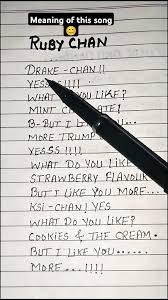 Meaning of this song
RUBY CHAN
DRAKE-CHAN!!
YESSS!!!!
WHAT YOU LIKE?
MINT
B-BUT I
MORE TRUMP
YESSS !!!!
WHAT DO YOU LIKE
STRAWBERRY FLAVOUR
BUT I LIKE YOU MORE...
KSI-CHAN! YES
WHAT DO YOU LIKE?
COOKIES & THE CREAM.
BUT I LIKE YOU.....
MORE...!!!!